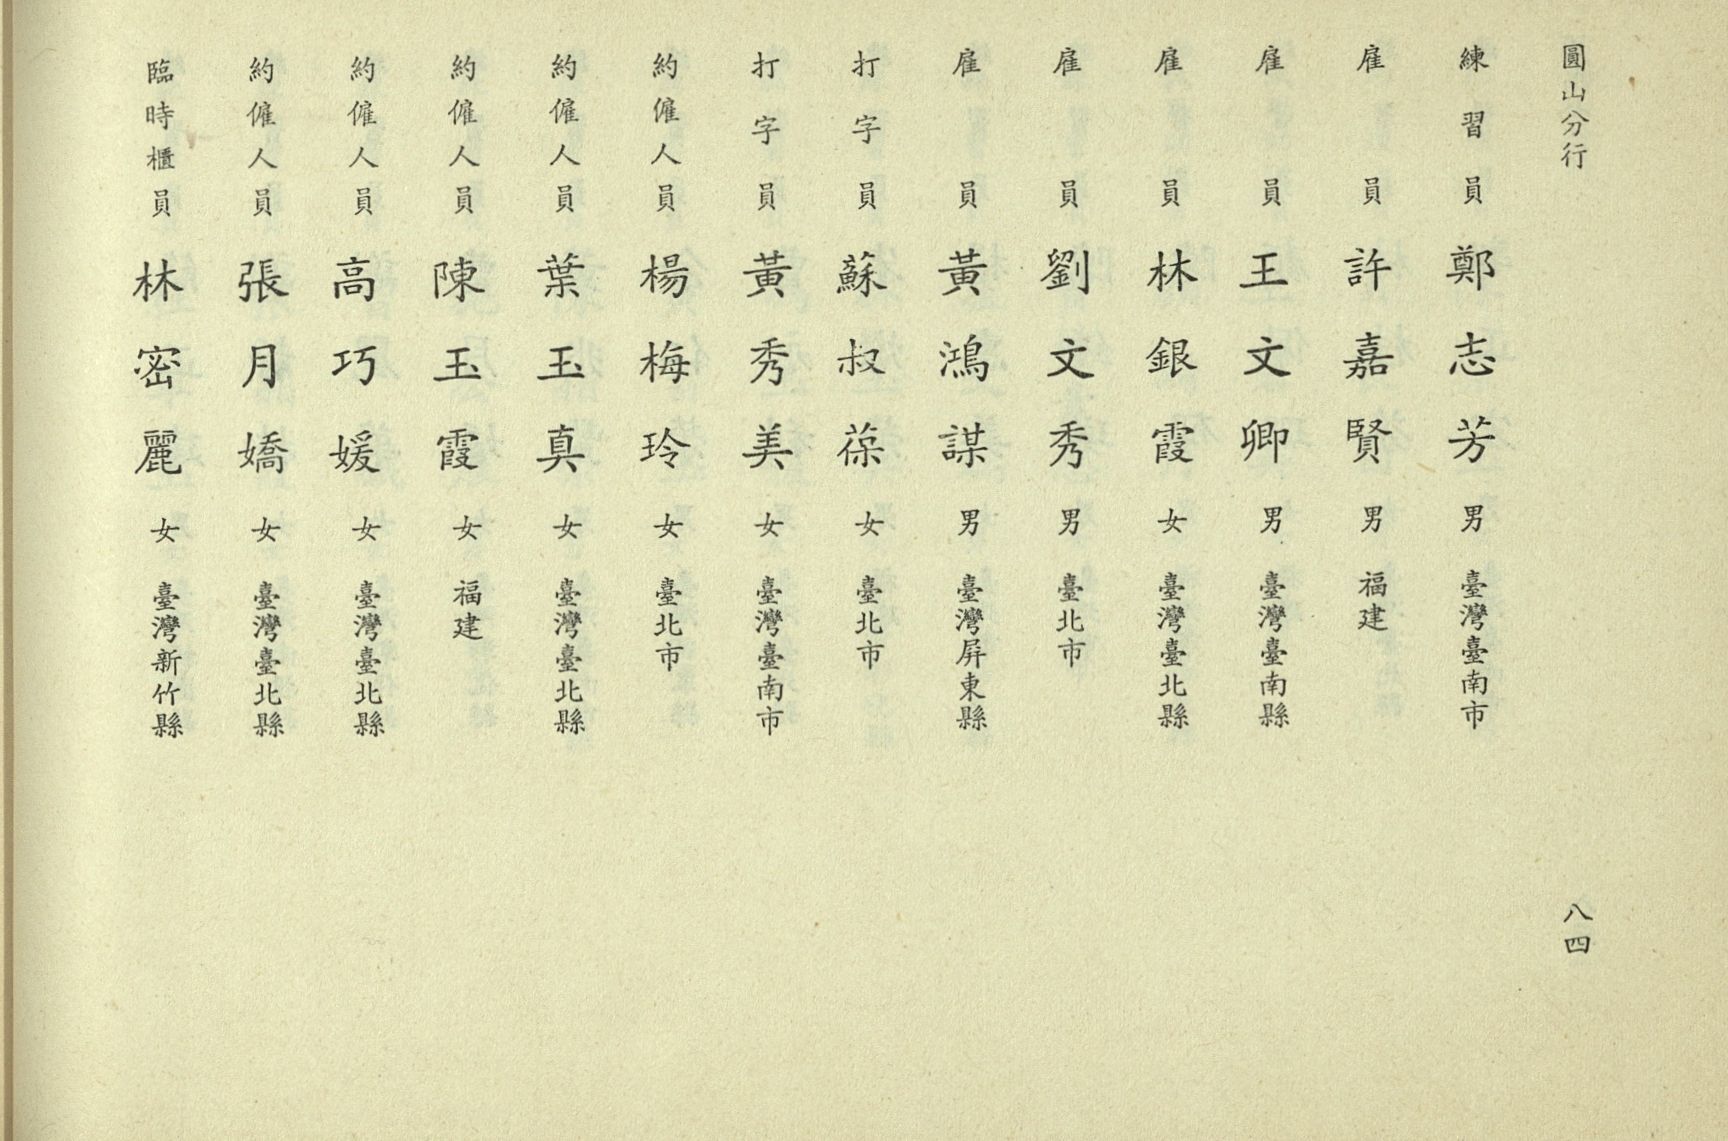 圓山分行
八四
練習員 鄭志芳 男 臺灣臺南市
雇員 許嘉賢 男 福建
雇員 王文卿 男 臺灣臺南縣
雇員 林銀霞 女 臺灣臺北縣
雇員 劉文秀 男 臺北市
雇員 黃鴻謀 男 臺灣屏東縣
打字員 蘇叔葆 女 臺北市
打字員 黃秀美 女 臺灣臺南市
約僱人員 楊梅玲 女 臺北市
約僱人員 葉玉真 女 臺灣臺北縣
約僱人員 陳玉霞 女 福建
約僱人員 高巧媛 女 臺灣臺北縣
約僱人員 張月嬌 女 臺灣臺北縣
臨時櫃員 林密麗 女 臺灣新竹縣